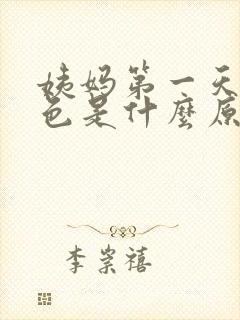 姨妈第一天
色是什麽原
李崇禧